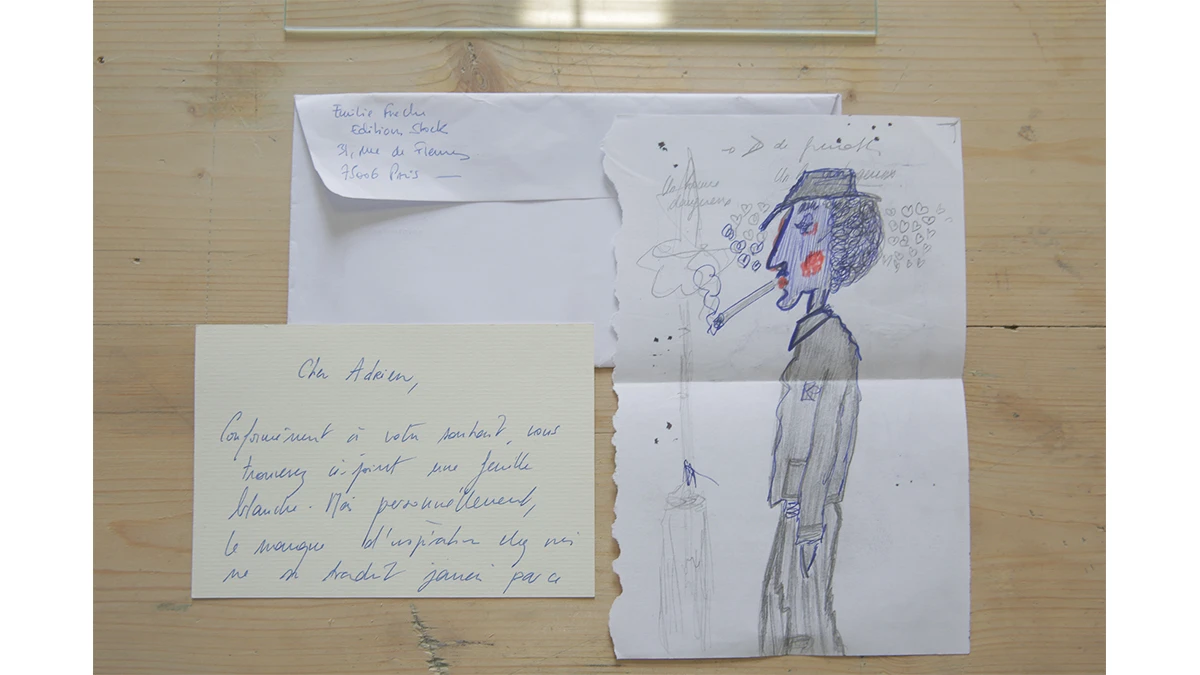 Emilie Freche
Editions Stock
31, rue de Fleurus
75006 Paris
Cher Adrien,
Conformément à votre souhait, vous
trouverez ci-joint une feuille
blanche. Moi personnellement,
le manque d'inspiration chez moi
ne se traduit jamais par ce
de
Un
dangereux
Un